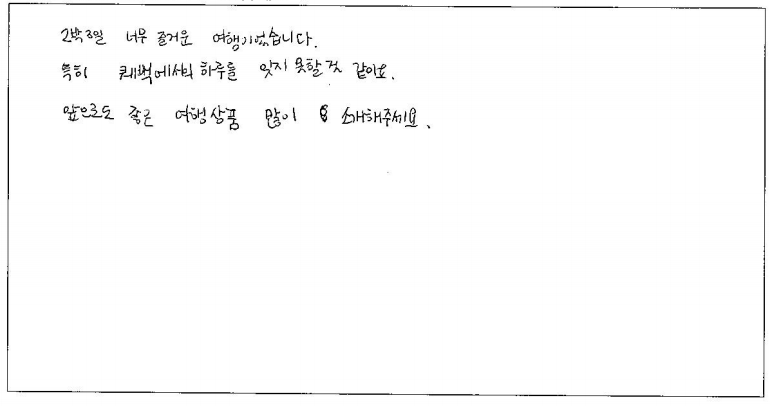 2박3일 너무 즐거운 여행이었습니다.
특히 퀘벡에서의 하루를 잊지 못할것 같아요.
앞으로도 좋은 여행상품 많이 소개해주세요.